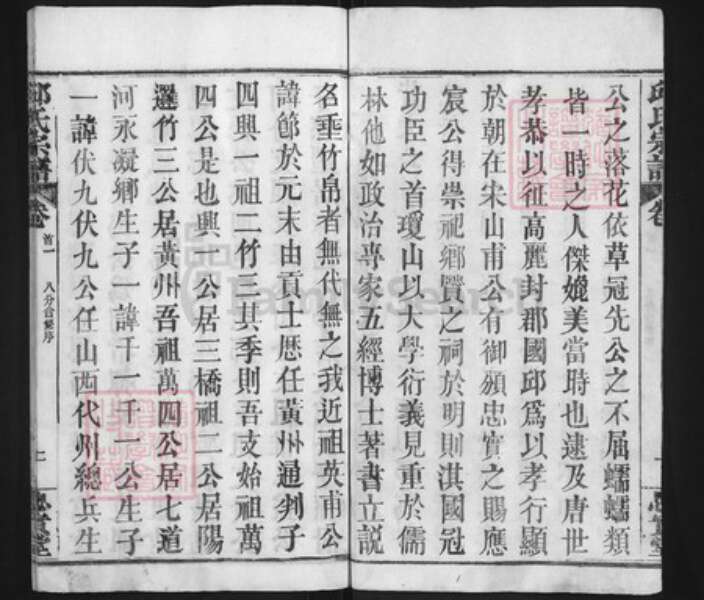 邱氏宗譜 卷
公之落花依草冠先公之不屈蠕蠕類
皆一時之人傑媲美當時也逮及唐世
孝恭以征高麗封郡國邱爲以孝行顯
於朝在宋山甫公有御頒忠實之賜應
宸公得崇祀鄉賢之祠於明則淇國冠
功臣之首瓊山以大學衍義見重於儒
林他如政治專家五經博士著書立説
名垂竹帛者無代無之我近祖英甫公
諱節於元末由貢士歴任黃州通判子
四興一祖二竹三其季則吾支始祖萬
四公是也興一公居三橋祖二公居陽
邏竹三公居黃州吾祖萬四公居七道
河永凝鄉生子一諱千一千一公生子
一諱伏九伏九公任山西代州總兵生
邱氏宗譜 卷首一 八分合修序 二 忠實堂